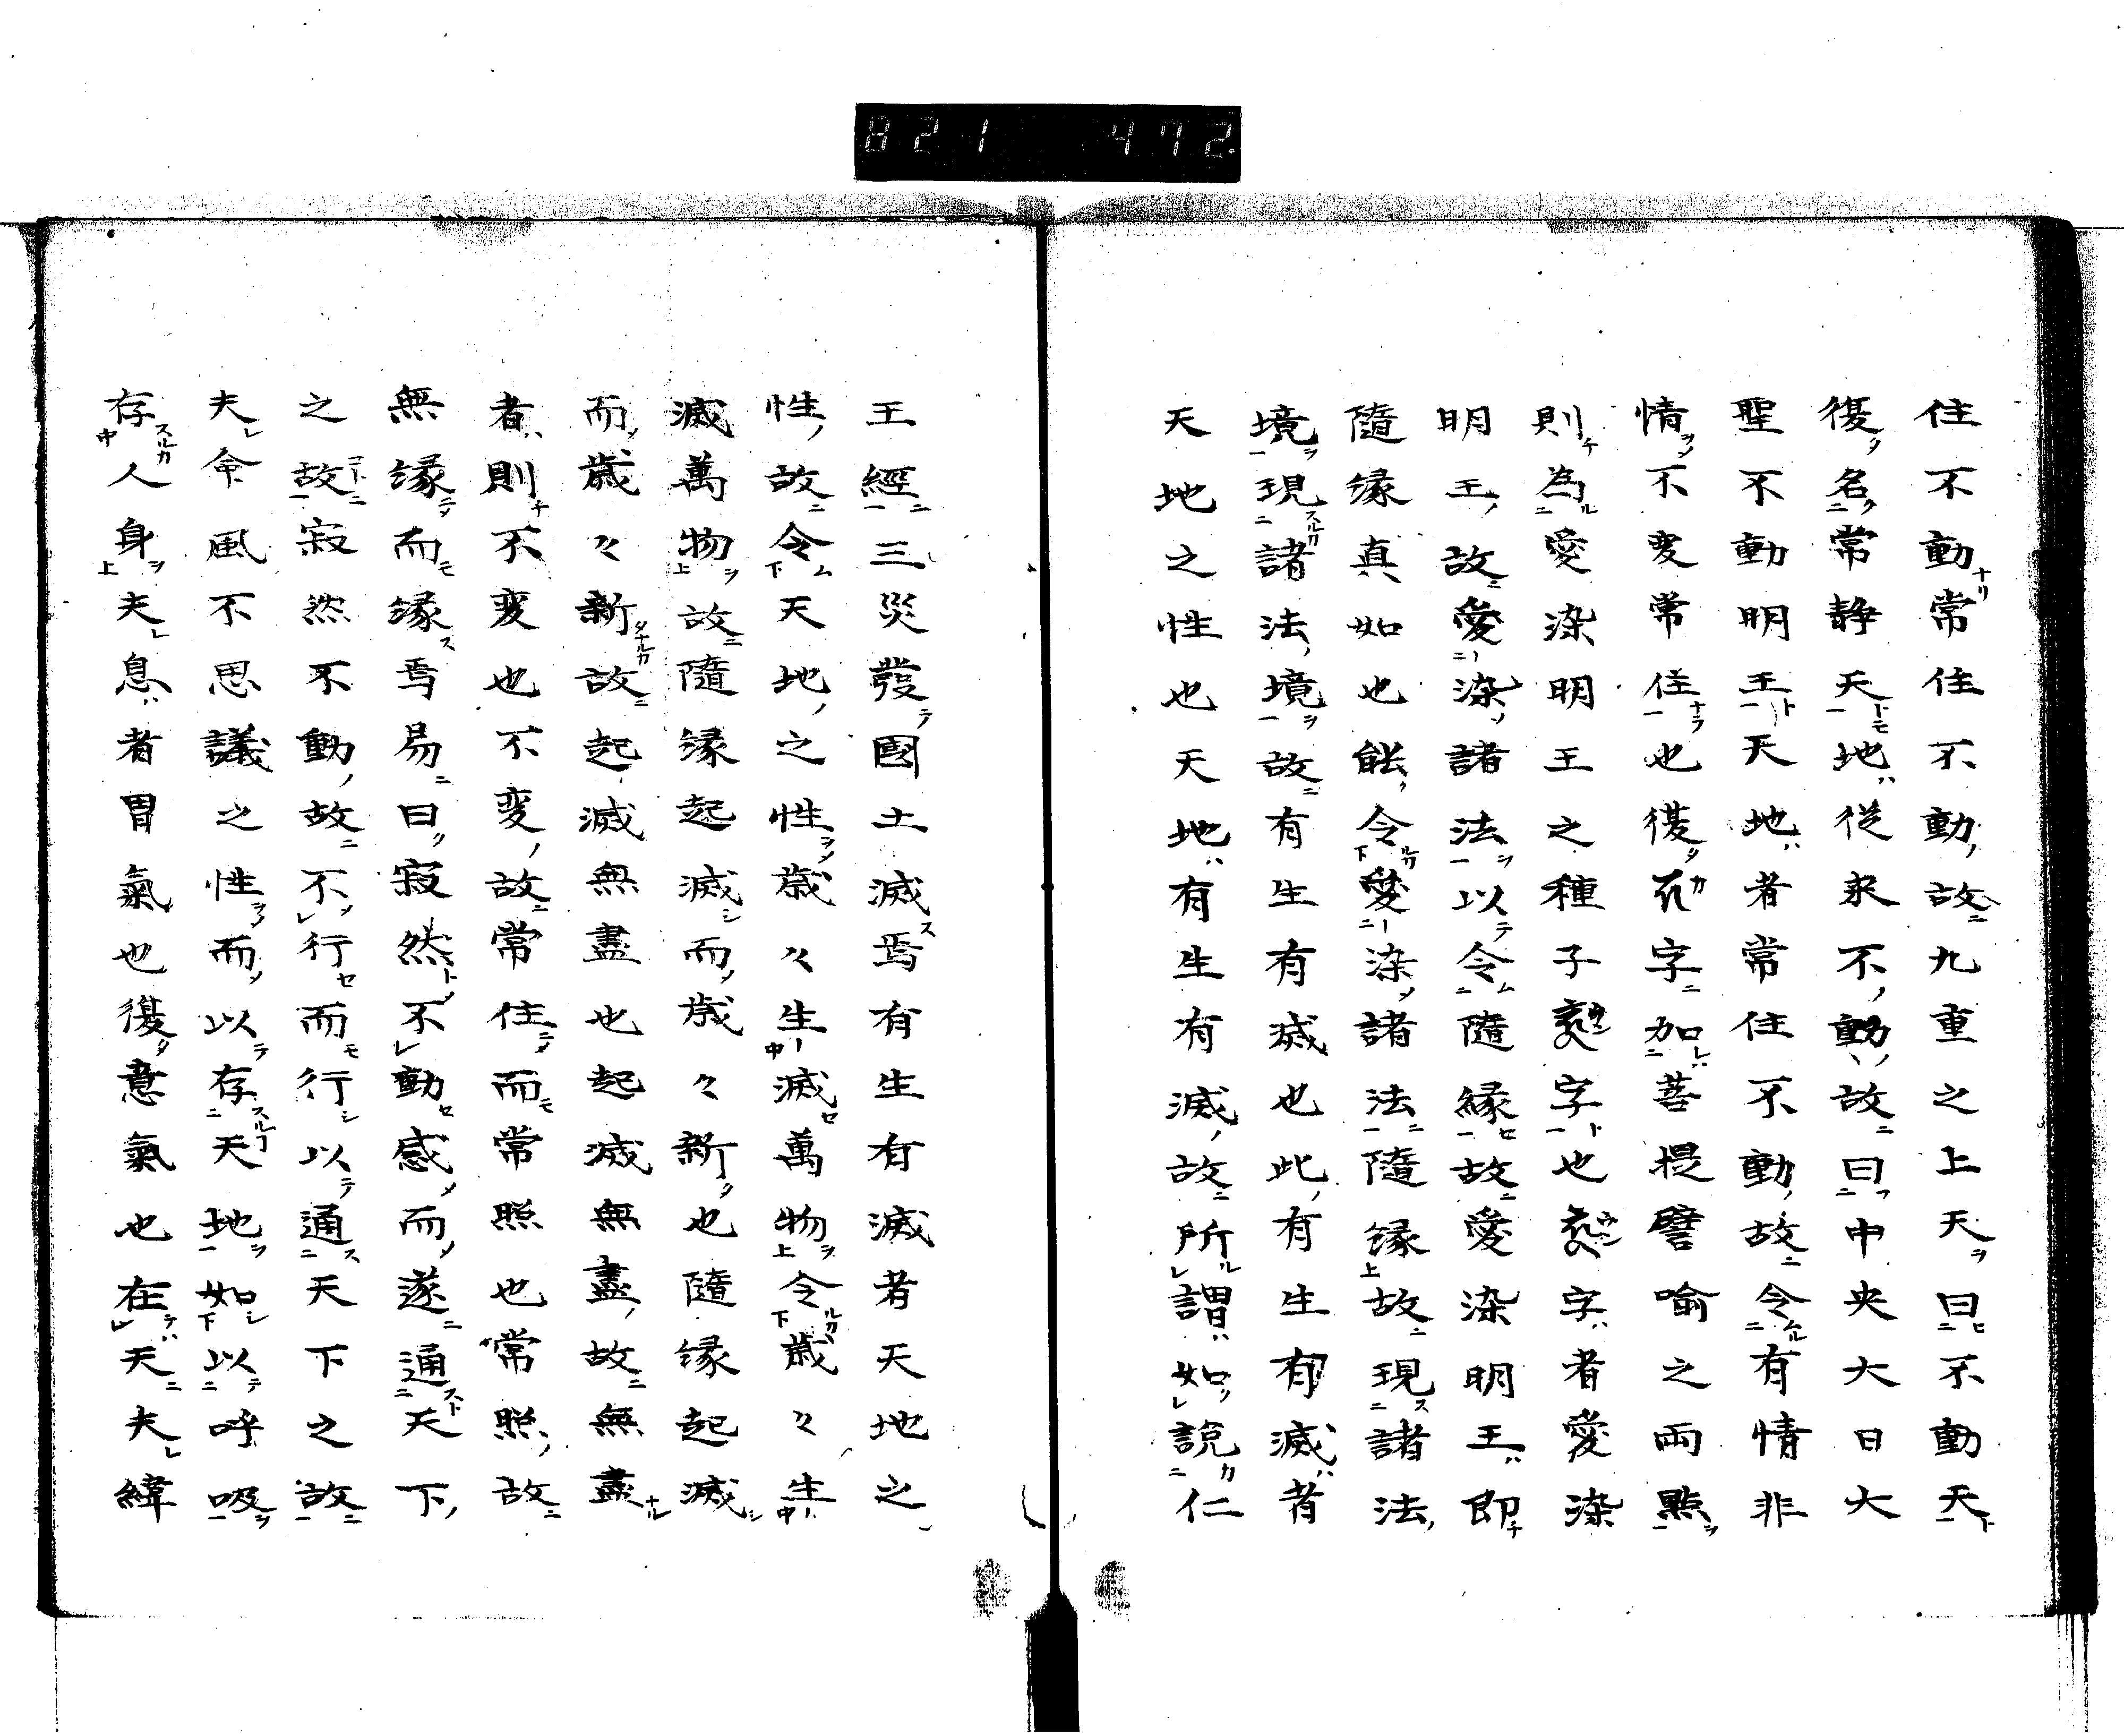 821 472
住不動常住不動故九重之上天曰不動天
復名常静天地従来不動故曰中央大日大
聖不動明王天地者常住不動故令有情非
情不変常住也復字加菩提譬喻之両點
則為愛染明王之種子字也字者愛染
明王故愛染諸法以令隨縁故愛染明王即
隨縁真如也能令愛染諸法隨縁故現諸法
境現諸法境故有生有滅也此有生有滅者
天地之性也天地有生有滅故所謂如說仁
王經三災發國土滅焉有生有滅者天地之
性故令天地之性歳々生滅萬物令歳々生
滅萬物故隨縁起滅而歳々新也隨縁起滅
而歳々新故起滅無盡也起滅無盡故無盡
者則不変也不変故常住而常照也常照故
無縁而縁焉易曰寂然不動感而遂通天下
之故寂然不動故不行而行以通天下之故
夫命風不思議之性而以存天地如以呼吸
存人身夫息者胃氣也復意氣也在天夫緯